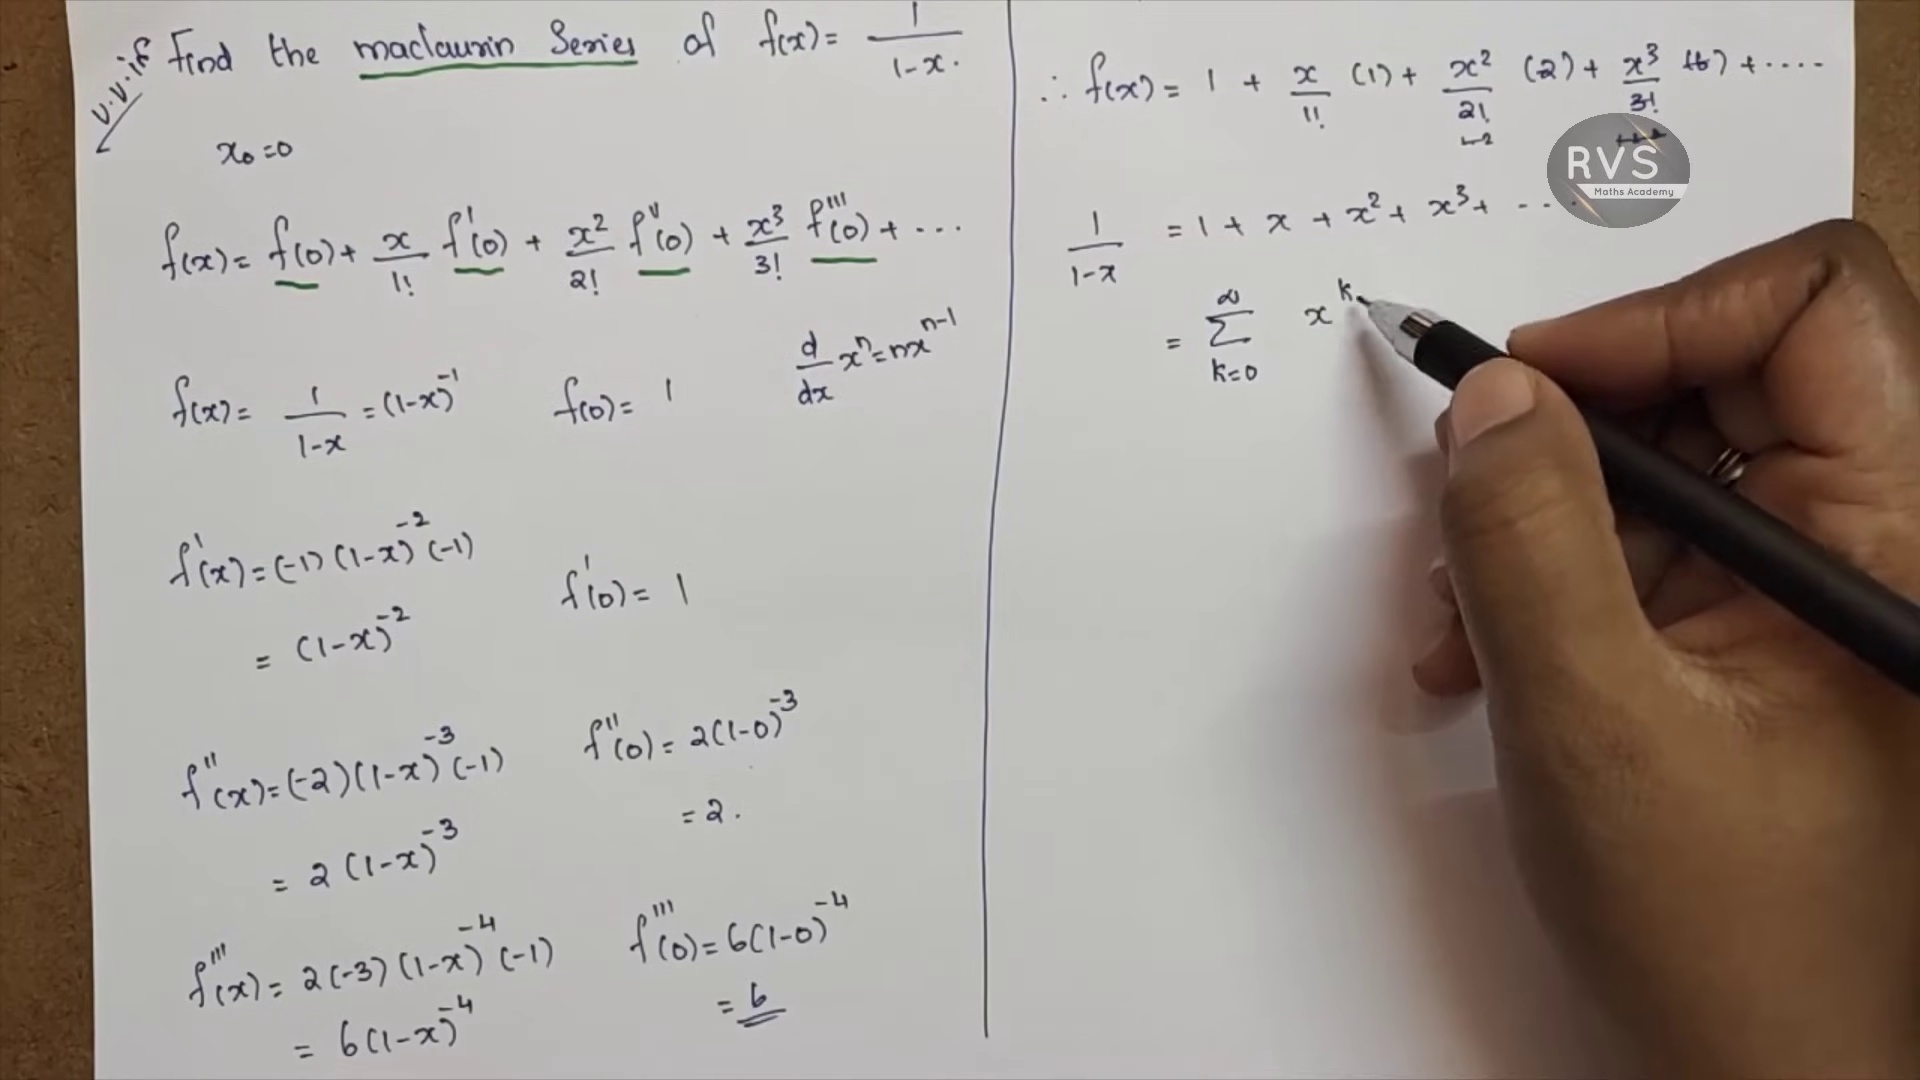 v.v.if
Find the maclaurin Series of f(x) = 1/(1-x).
x₀ = 0
f(x) = f(0) + x/1! f'(0) + x²/2! f''(0) + x³/3! f'''(0) + ...
f(x) = 1/(1-x) = (1-x)⁻¹    f(0) = 1    d/dx xⁿ = nxⁿ⁻¹
f'(x) = (-1)(1-x)⁻²(-1)    f'(0) = 1
= (1-x)⁻²
f''(x) = (-2)(1-x)⁻³(-1)    f''(0) = 2(1-0)⁻³
= 2(1-x)⁻³    = 2.
f'''(x) = 2(-3)(1-x)⁻⁴(-1)    f'''(0) = 6(1-0)⁻⁴
= 6(1-x)⁻⁴    = 6
∴ f(x) = 1 + x/1! (1) + x²/2! (2) + x³/3! (6) + ....
RVS
Maths Academy
1/(1-x) = 1 + x + x² + x³ + ....
= ∞ Σ k=0 xᵏ